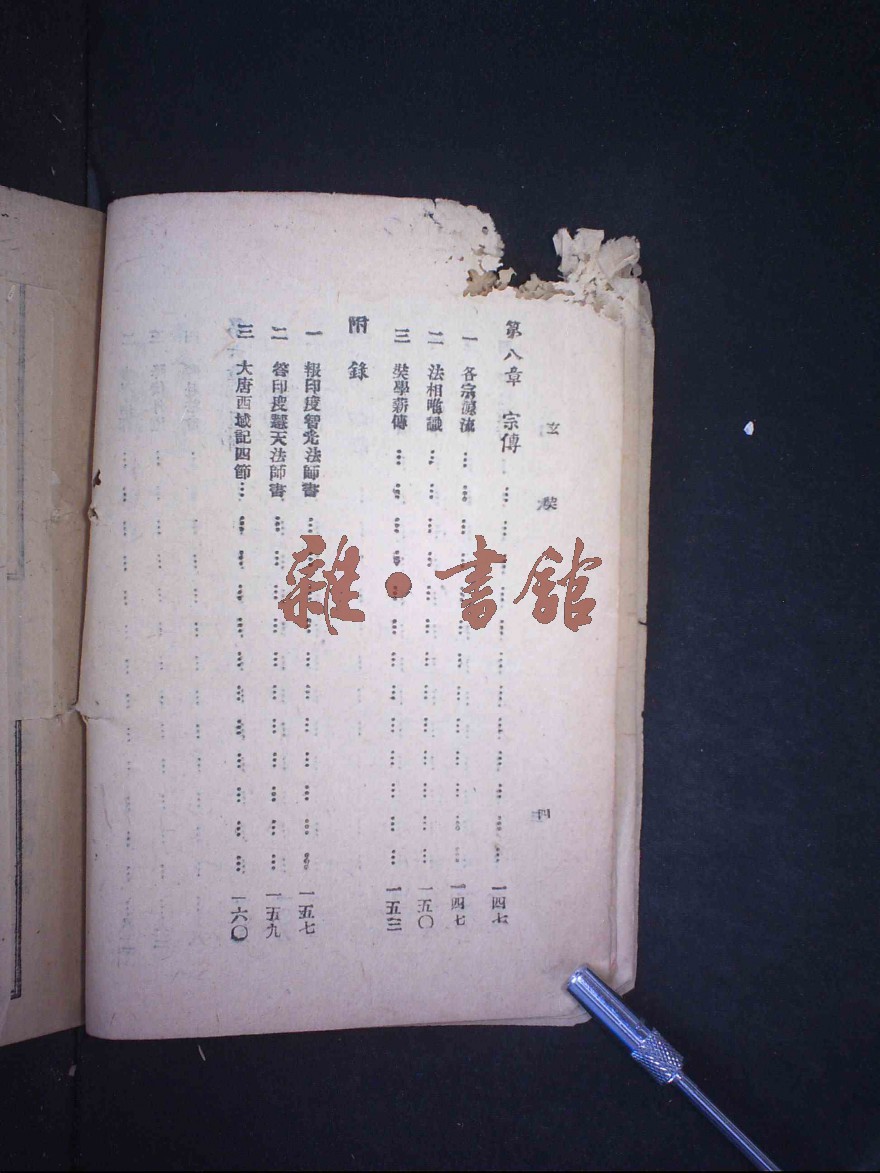 玄奘
四
第八章 宗傳……一四七
一 各宗源流……一四七
二 法相唯識……一五〇
三 奘學薪傳……一五三
附錄
一 報印度智光法師書……一五七
二 答印度慧天法師書……一五九
三 大唐西域記四節……一六〇
雜·書館